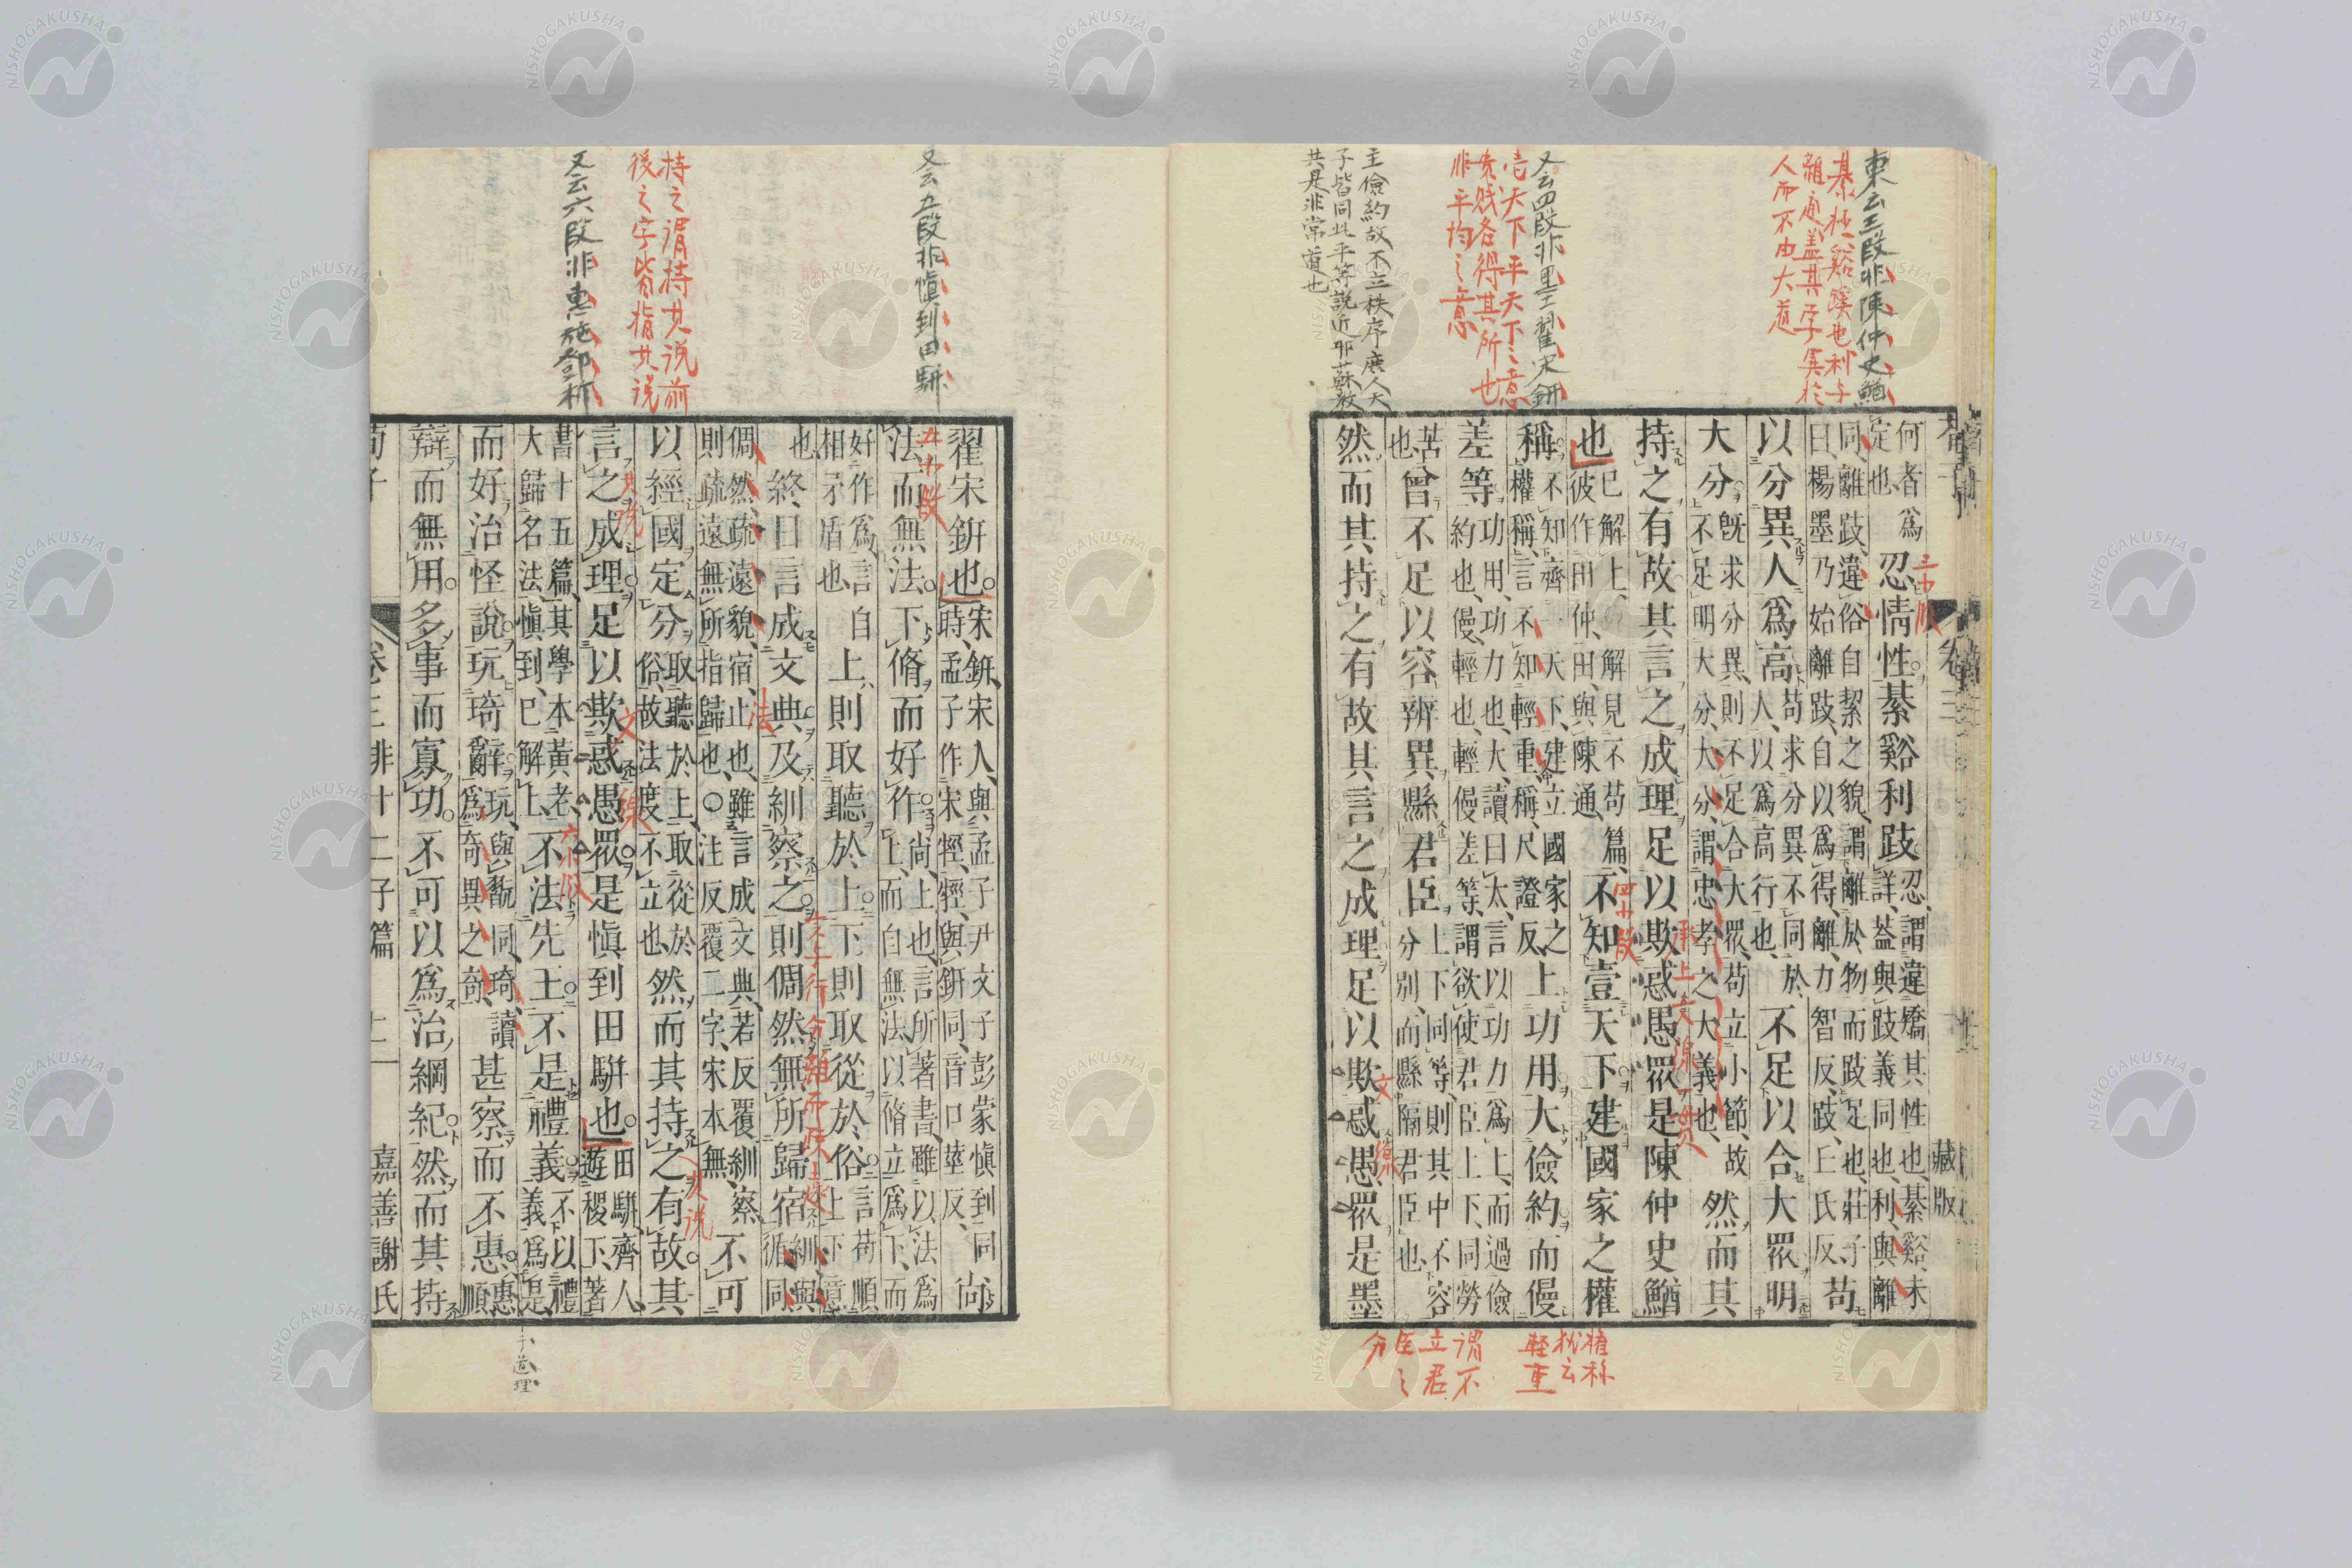 東云三段非陳仲史鰌
綦極谿蹊也利与
離通蓋其字異於
人而不由大道
又云四段非墨翟宋鈃
壱天下平天下之意
貴賎各得其所也
非平均之意
主儉約故不立秩序庶人天
子皆同此平等説近耶蘇教
共是非常道也
藏版
何者爲
定也
忍情性綦谿利跂
忍謂違矯其性也綦谿未
詳蓋與跂義同也利與離
同離跂違俗自絜之貌謂離於物而跂足也莊子
曰楊墨乃始離跂自以爲得離力智反跂丘氏反
苟
以分異人爲高
苟求分異不同於
人以爲高行也
不足以合大眾明
大分
既求分異則不足合大眾苟立小節故
不足明大分大分謂忠孝之大義也
然而其
持之有故其言之成理足以欺惑愚眾是陳仲史鰌
也
已解上解見不苟篇
彼作田仲田與陳通
不知壹天下建國家之權
稱
不知齊一天下建立國家之
權稱言不知輕重稱尺證反
上功用大儉約而僈
差等
功用功力也大讀曰太言以功力爲上而過儉
約也僈輕也輕僈差等謂欲使君臣上下同勞
苦
也
曾不足以容辨異縣君臣
上下同等則其中不容
分別而縣隔君臣也
然而其持之有故其言之成理足以欺惑愚眾是墨
三小段
四小段
承上文
文
権称
猶云
軽重
謂不
立君
臣之
分
又云五段非愼到田駢
持之謂持其说前
後之字皆指其说
又云六段非惠施鄧析
翟宋鈃也
宋鈃宋人與孟子尹文子彭蒙愼到同
時孟子作宋牼牼與鈃同音口莖反
尙
法而無法下脩而好作
尚上也言所著書雖以法爲
上而自無法以脩立爲下而
好作爲言自
相矛盾也
上則取聽於上下則取從於俗
言苟順
上下意
也
終日言成文典及紃察之則倜然無所歸宿
紃與
循同
倜然疏遠貌宿止也雖言成文典若反覆紃察
則疏遠無所指歸也○注反覆二字宋本無
不可
以經國定分
取聽於上取從於
俗故法度不立也
然而其持之有故其
言之成理足以欺惑愚眾是愼到田駢也
田駢齊人
遊稷下著
書十五篇其學本黃老
大歸名法愼到已解上
不法先王不是禮義
不以禮
義爲是
而好治怪說玩琦辭
玩與翫同琦讀
爲奇異之奇
甚察而不惠
惠
順
辯而無用多事而寡功不可以爲治綱紀然而其持
五小段
六小段
法
文
其说
道理
荀子
卷三非十二子篇
十一
嘉善謝氏